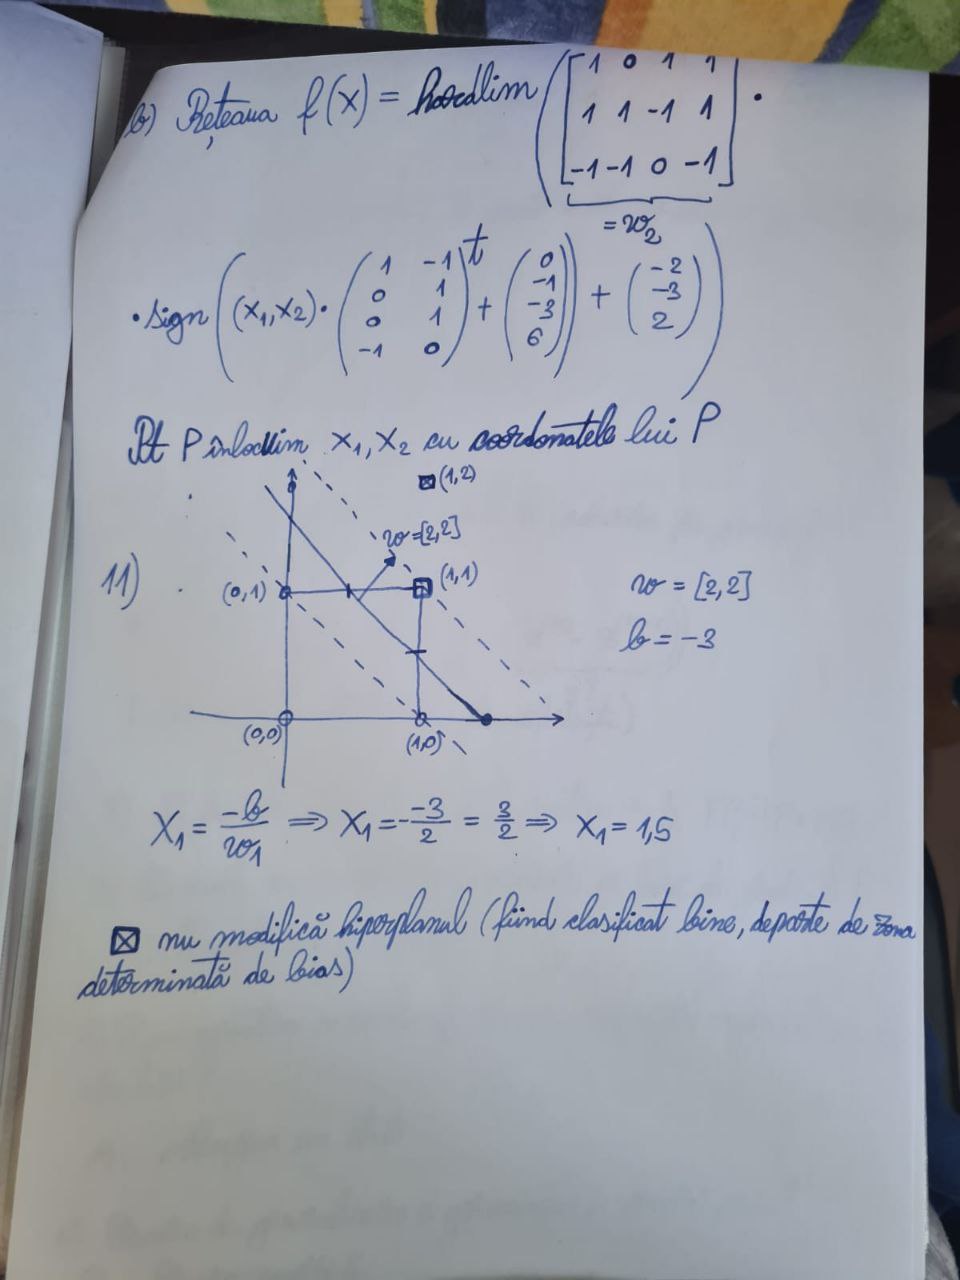 b) Rețeaua f(x) = hardlim ( [ 1 0 1 1
1 1 -1 1
-1 -1 0 -1 ] ·
= w₂
· sign ( (x₁, x₂) · ( 1 -1
0 1
0 1
-1 0 )ᵗ + ( 0
-1
-3
6 ) ) + ( -2
-3
2 ) )
Pt P înlocuim x₁, x₂ cu coordonatele lui P
(1,2)
w=[2,2]
11)
(0,1)
(1,1)
w = [2,2]
b = -3
(0,0)
(1,0)
X₁ = -b/w₁ ⇒ X₁ = - -3/2 = 3/2 ⇒ X₁ = 1,5
⊠ nu modifică hiperplanul (fiind clasificat bine, departe de zona
determinată de bias)